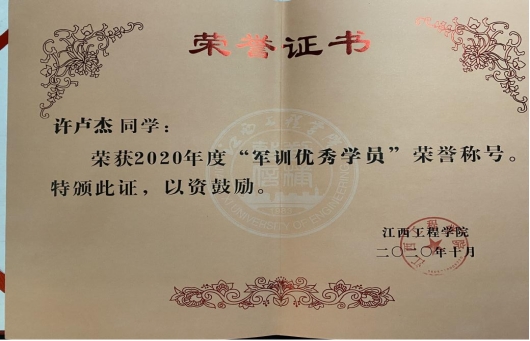 荣誉证书
许卢杰 同学：
荣获2020年度“军训优秀学员”荣誉称号。
特颁此证，以资鼓励。
江西工程学院
二〇二〇年十月